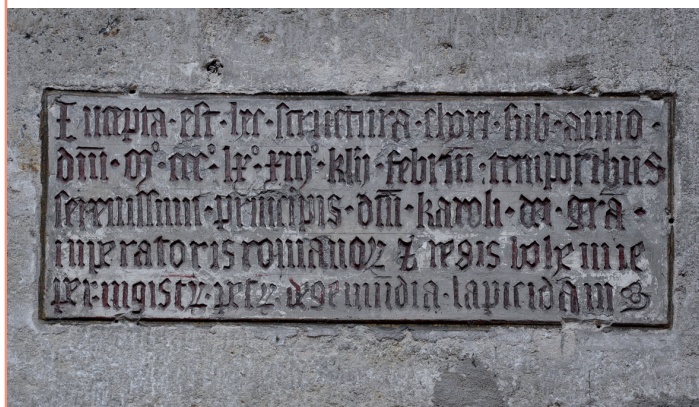 Incepta·est·hec·structura·chori·sub·anno·
dni·mº·cccº·lxº·xiijº·kln·februarii·temporibus
serenissimi·principis·dni·karoli·dei·gra·
imperatoris romanoꝝ ⁊ regis bohemie
per·magistꝝ·petꝝ·degemundia·lapicidam